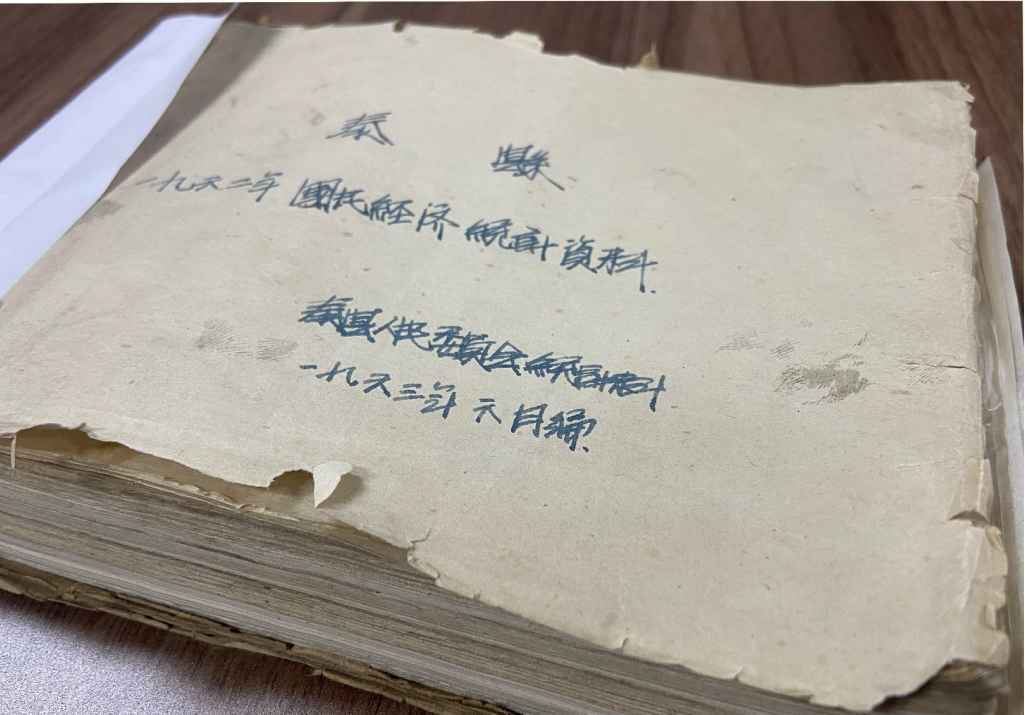 泰 縣
一九六二年 國民經济統計資料.
泰县人民委員会統計科
一九六三年六月編.